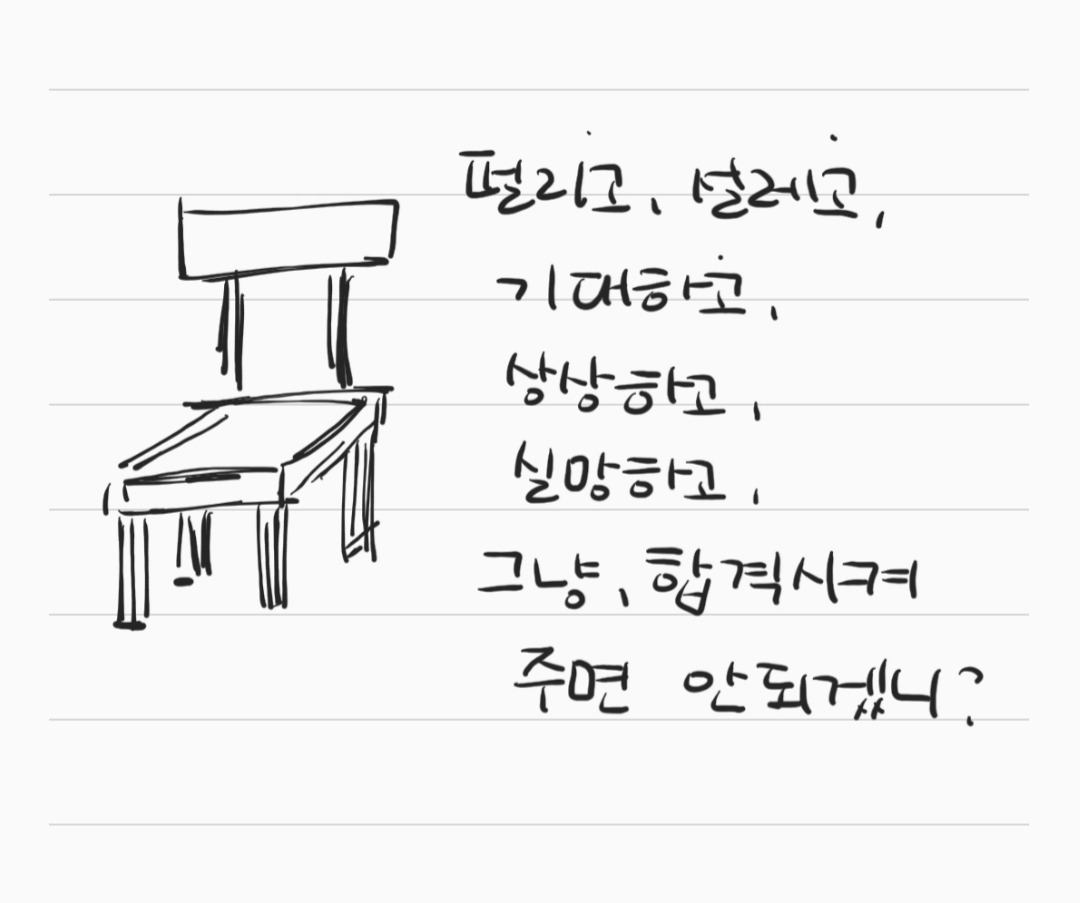 펄리고, 설레고,
기대하고,
상상하고,
실망하고,
그냥, 합격시켜
주면 안되겠니?